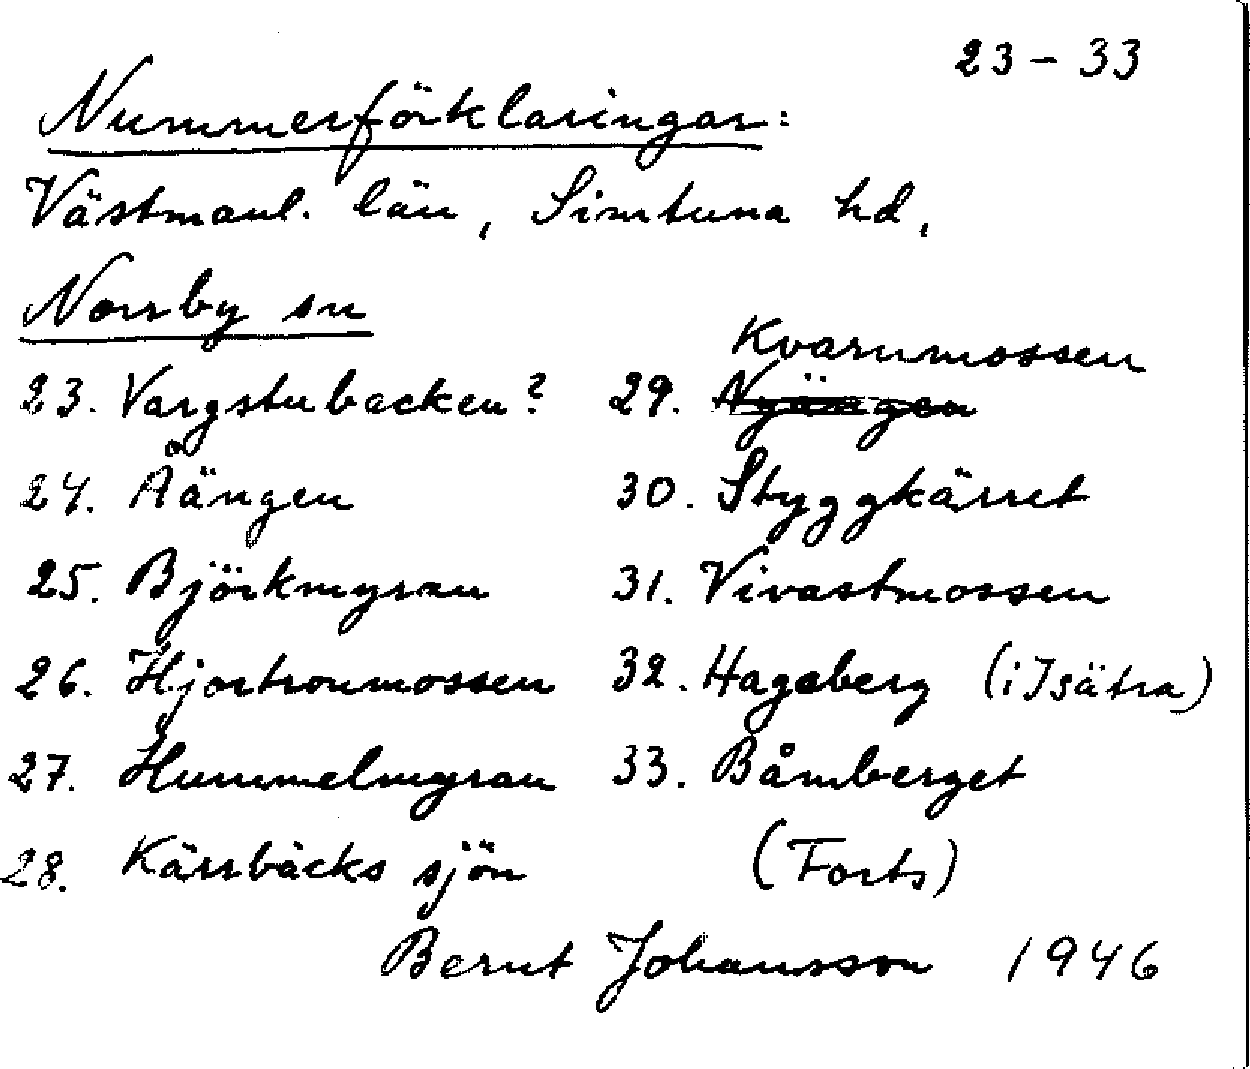 23 - 33
Nummerförklaringar:
Västmanl. län, Simtuna hd,
Norrby sn
23. Vargstubacken?
24. Åängen
25. Björkmyran
26. Hjortronmossen
27. Hummelmyran
28. Kärrbäcks sjön
Kvarnmossen
29. Nyängen
30. Styggkärret
31. Vivastmossen
32. Hagaberg (i Isätra)
33. Båmberget
(Forts)
Bernt Johansson 1946